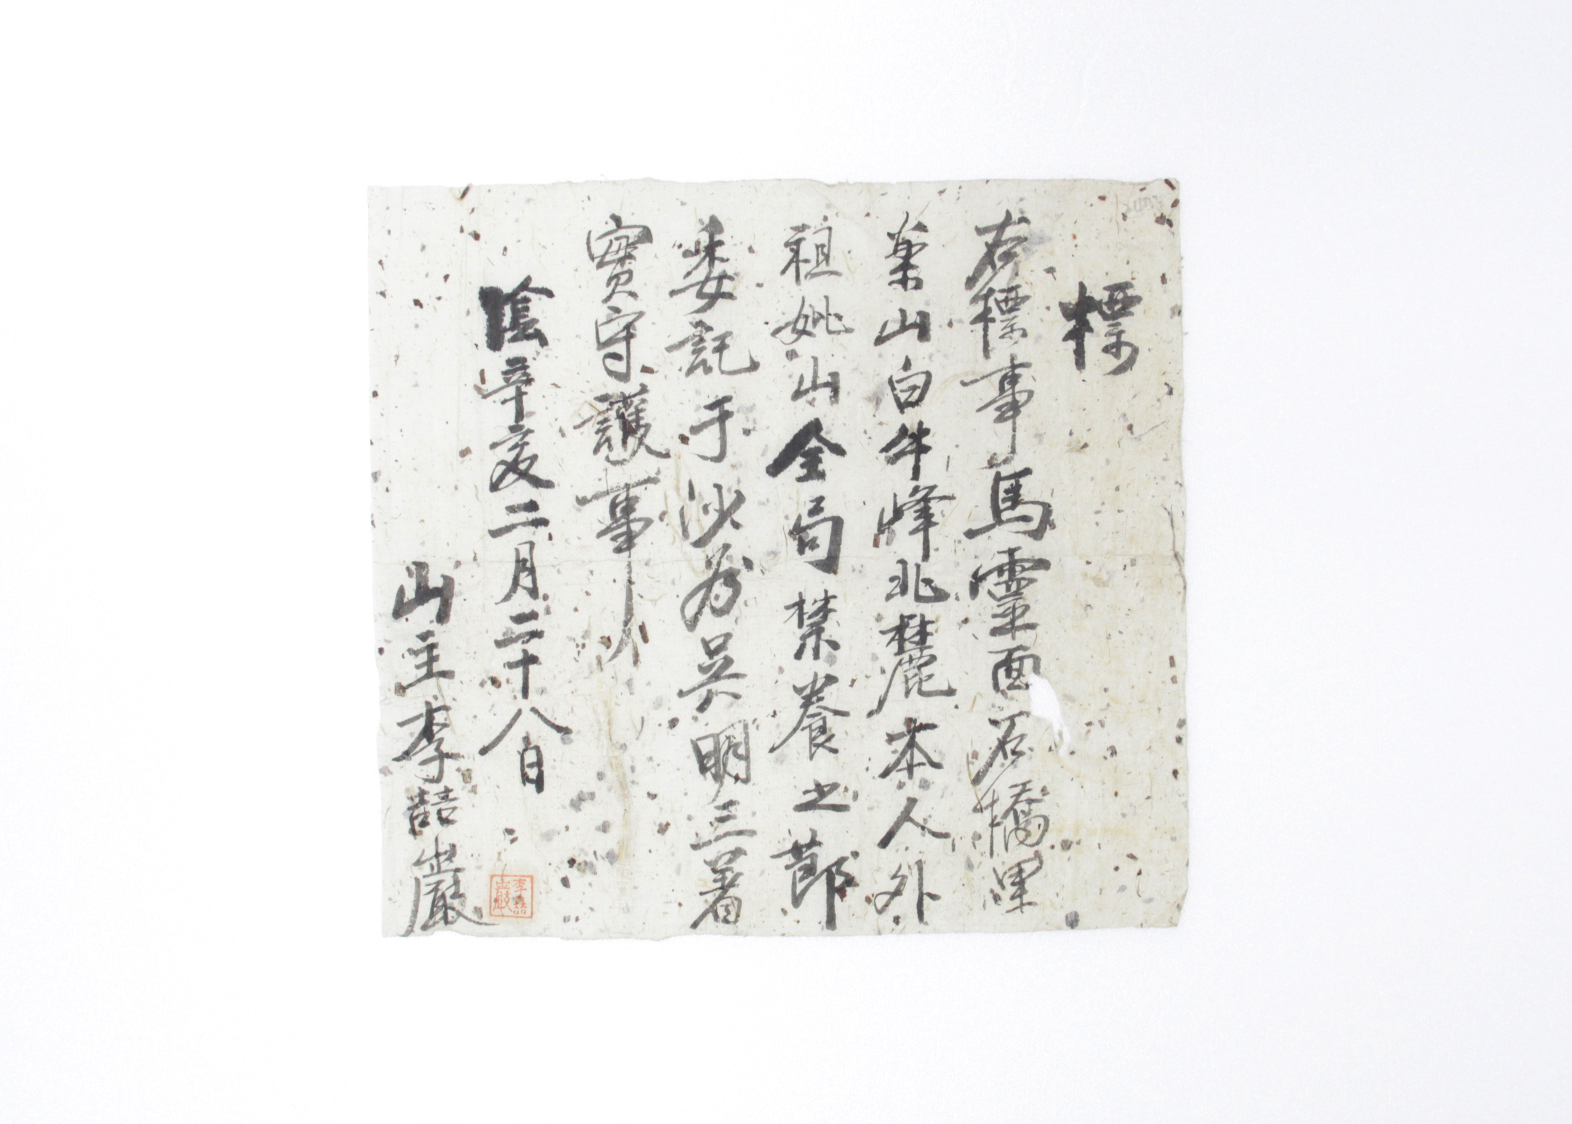 標
右標事馬靈面石橋里
葉山白牛峰北麓本人外
祖妣山全局禁養之節
委託于沙為吳明三著
實守護事
陰辛亥二月二十八日
山主李喆巖